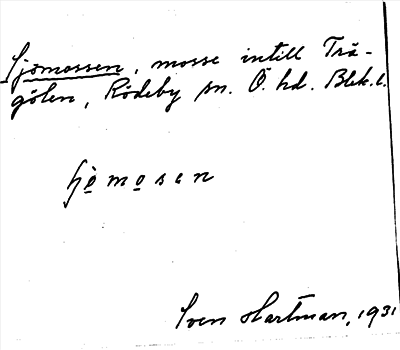 Sjömossen, mosse intill Trä-
gölen, Rödeby sn. Ö. hd. Blek. l.
sjömosen
Sven Hartman, 1931